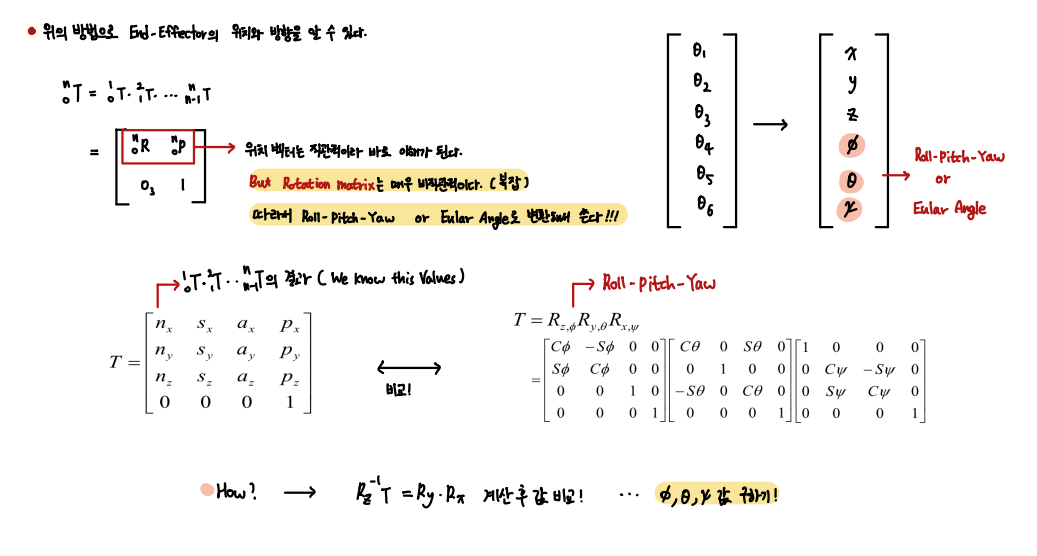 • 위의 방법으로 End-Effector의 위치와 방향을 알 수 있다.
ⁿ₀T = ¹₀T · ²₁T · ... ⁿₙ₋₁T
= [ ⁿ₀R ⁿ₀P
0₃ 1 ]
→ 위치 벡터는 직관적이라 바로 이해가 된다.
But Rotation matrix는 매우 비직관적이다. (복잡)
따라서 Roll-Pitch-Yaw or Eular Angle로 변환해서 쓴다!!!
[ θ₁
θ₂
θ₃
θ₄
θ₅
θ₆ ]
→
[ x
y
z
φ
θ
ψ ]
→ Roll-Pitch-Yaw
or
Eular Angle
¹₀T · ²₁T ·· ⁿₙ₋₁T의 결과 ( We know this Values )
T = [ n_x s_x a_x p_x
n_y s_y a_y p_y
n_z s_z a_z p_z
0 0 0 1 ]
↔
비교!
→ Roll-Pitch-Yaw
T = R_{z,φ} R_{y,θ} R_{x,ψ}
= [ Cφ -Sφ 0 0 ] [ Cθ 0 Sθ 0 ] [ 1 0 0 0 ]
[ Sφ Cφ 0 0 ] [ 0 1 0 0 ] [ 0 Cψ -Sψ 0 ]
[ 0 0 1 0 ] [ -Sθ 0 Cθ 0 ] [ 0 Sψ Cψ 0 ]
[ 0 0 0 1 ] [ 0 0 0 1 ] [ 0 0 0 1 ]
How? → R_z⁻¹ T = Ry · Rx 계산 후 값 비교! ... φ, θ, ψ 값 구하기!